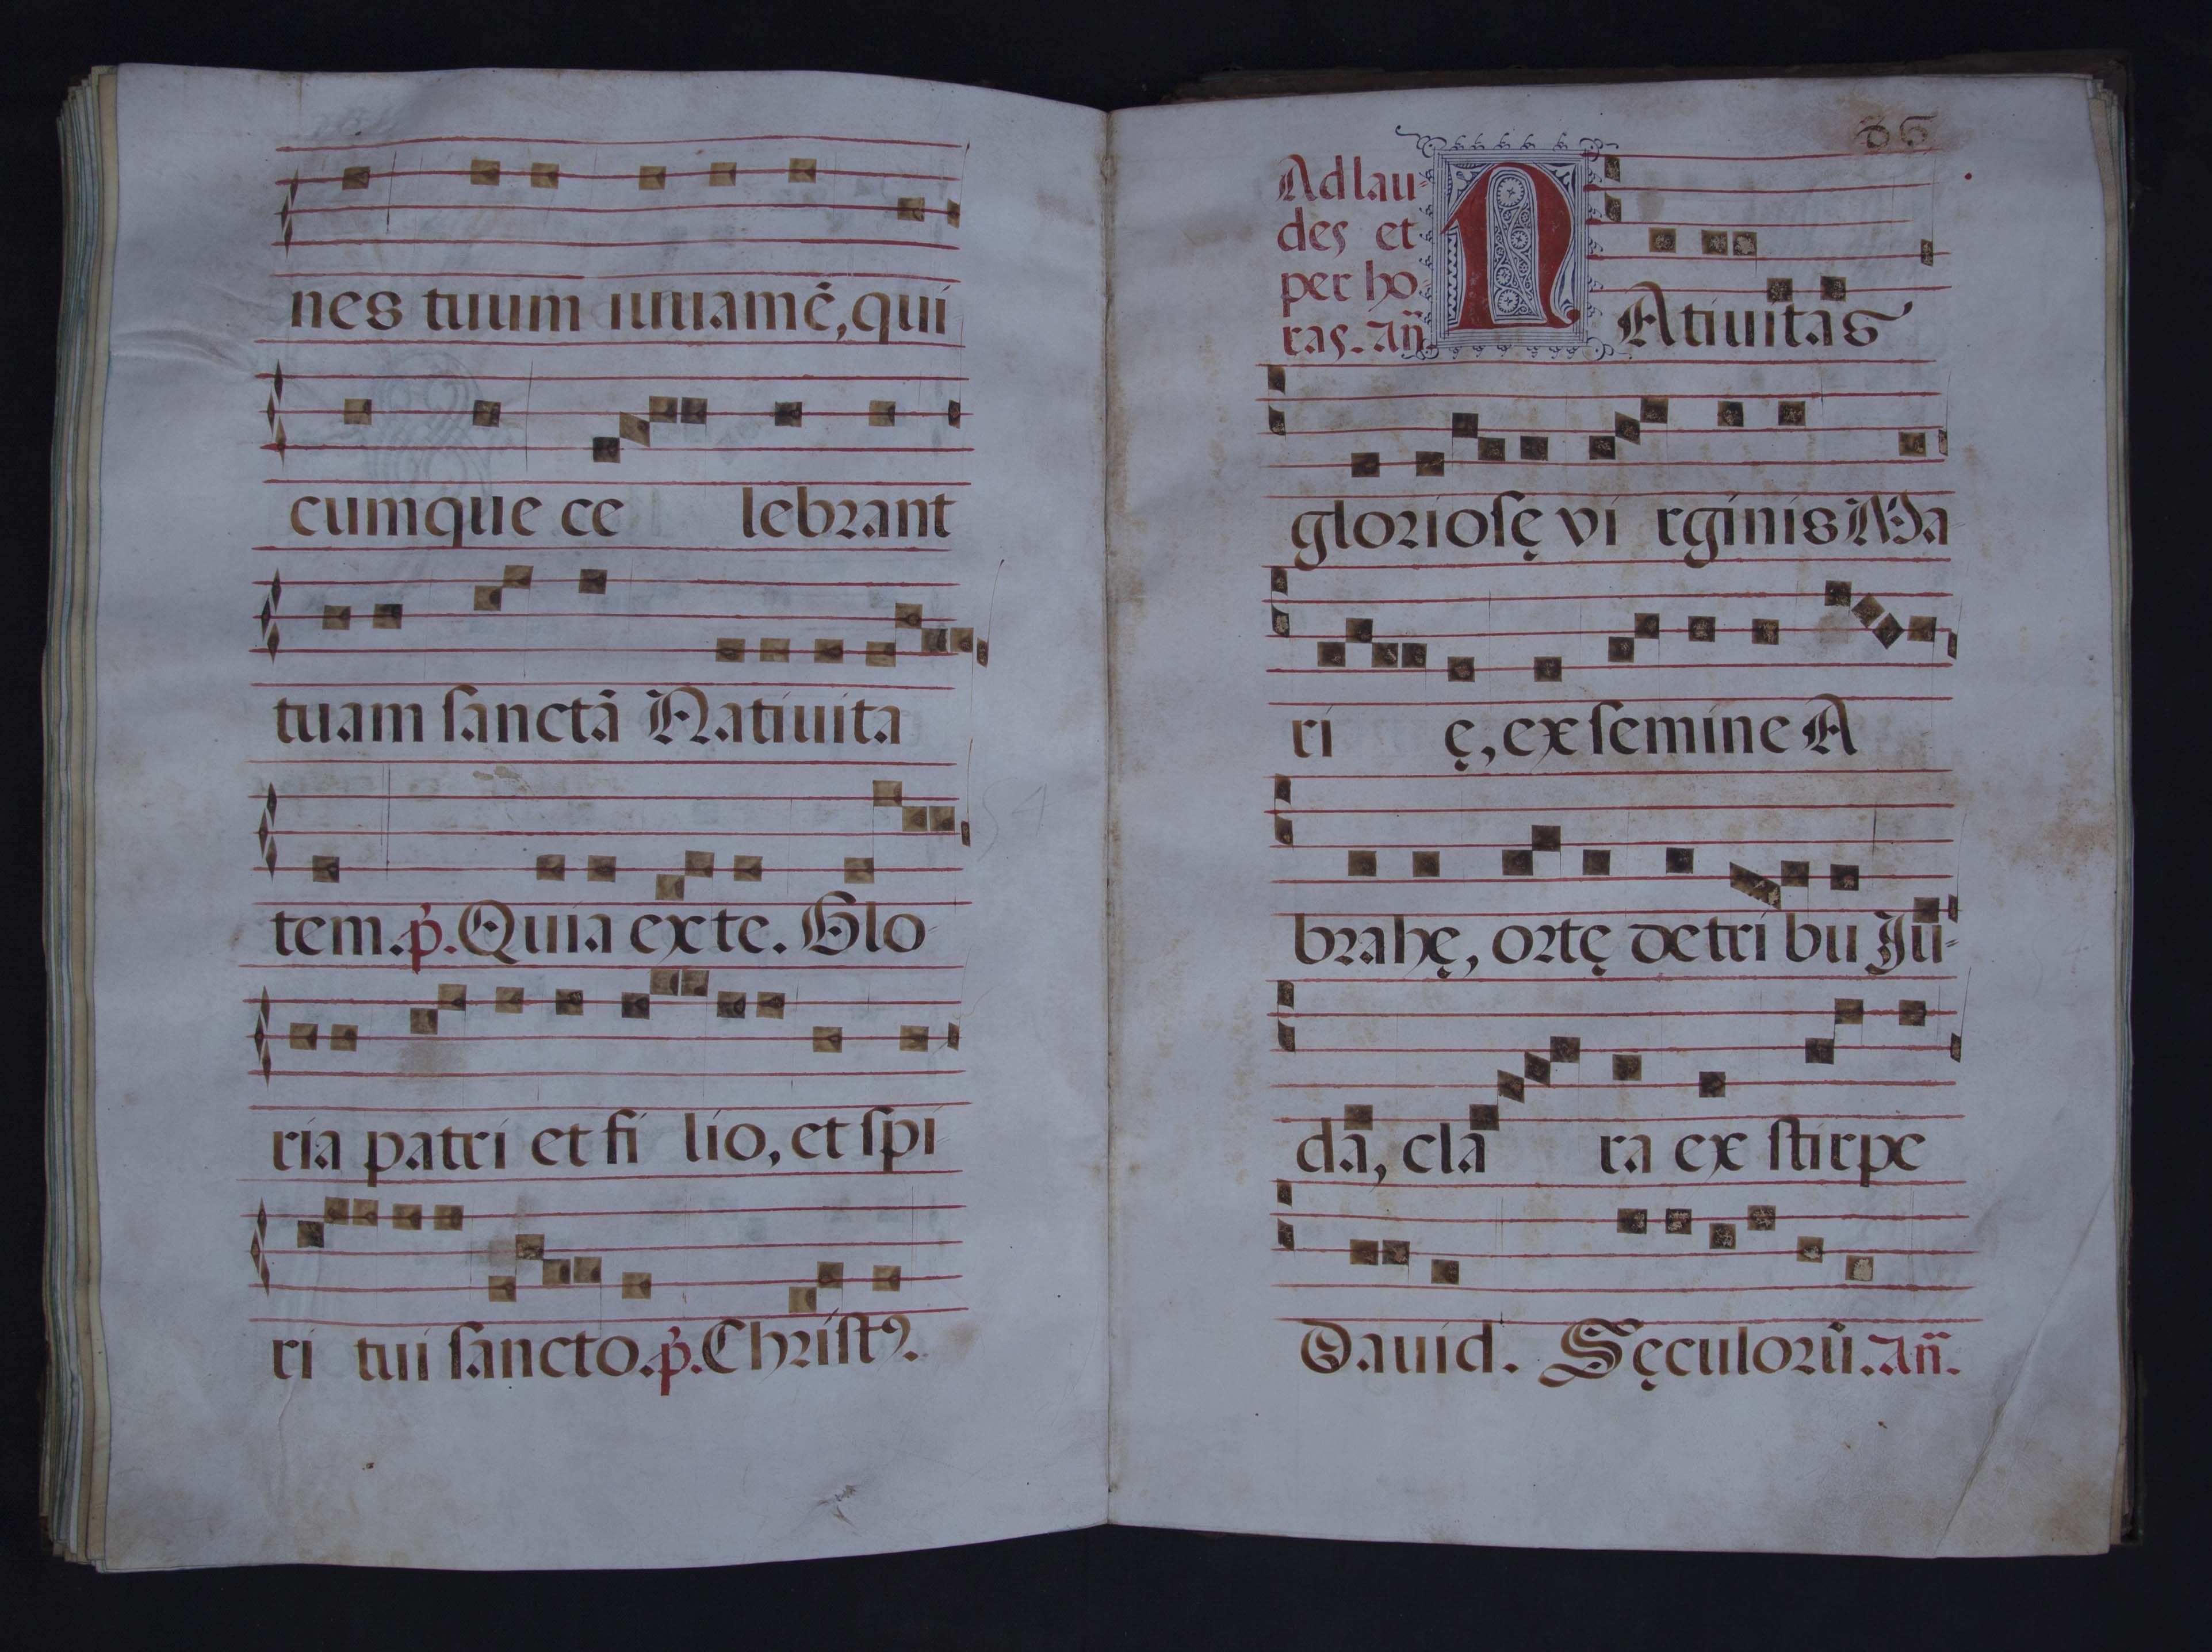 nes tuum iuuamē, qui
cumque ce lebrant
tuam sanctā Natiuita
tem. p̄. Quia ex te. Glo
ria patri et fi lio, et spi
ri tui sancto. p̄. Christꝰ.
Ad lau-
des et
per ho
ras. An̄.
NAtiuitas
gloriosę vi rginis Ma
ri ę, ex semine A
brahę, ortę de tri bu Iu-
da, cla ra ex stirpe
Dauid. Sęculorū. An̄.